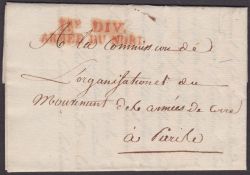 DIV.
ARMÉE DU NORD
A la Commission de
L'organisation et du
Mouvement des armées de terre
à Paris